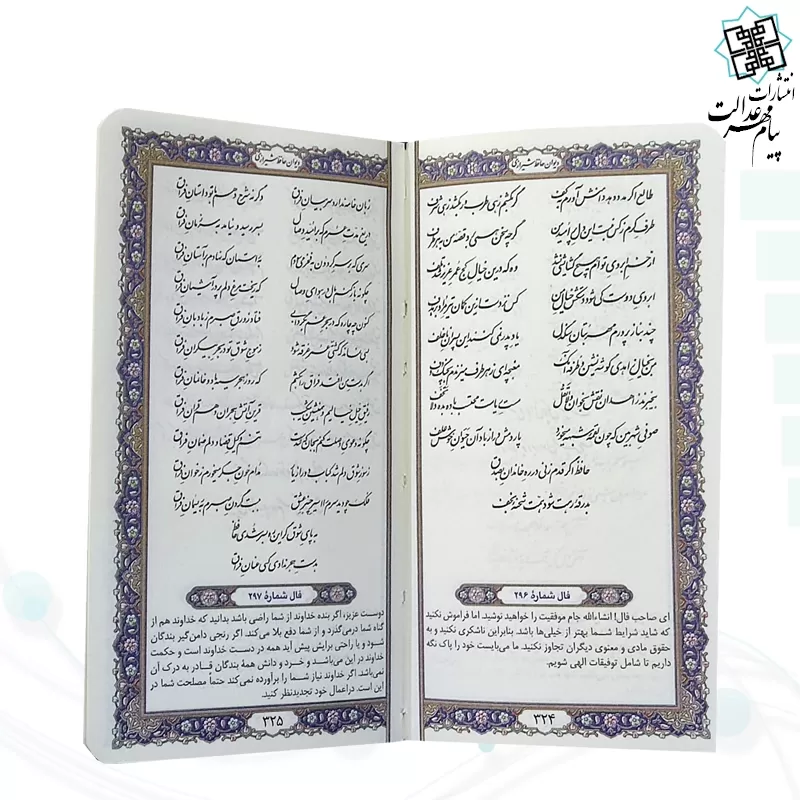 انتشارات
پیام مهر عدالت
دیوان حافظ شیرازی
طالع اگر مدد دهد دامنش آورم به کف گر بکشم زهی طرب ور بکشد زهی شرف
طرف کرم ز کس نبست این دل پر امید من گرچه سخن همی برد قصه من به هر طرف
از خم ابروی توام هیچ گشایشی نشد وه که درین خیال کج عمر عزیز شد تلف
ابروی دوست کی شود دستکش خیال من کس نزدست ازین کمان تیر مراد بر هدف
چند بناز پرورم مهر بتان سنگدل یاد پدر نمی‌کنند این پسران ناخلف
من بخیال زاهدی گوشه نشین و طرفه آنک مغبچه‌ای ز هر طرف میزندم بچنگ و دف
بیخبرند زاهدان نقش بخوان و لاتقل مست ریاست محتسب باده بده و لاتخف
صوفی شهر بین که چون لقمه شبهه میخورد پاردمش دراز باد آن حیوان خوش علف
حافظ اگر قدم زنی در ره خاندان بصدق
بدرقه رهت شود همت شحنه نجف
فال شمارهٔ ۲۹۶
ای صاحب فال! انشاءالله جام موفقیت را خواهید نوشید. اما فراموش نکنید
که شاید شرایط شما بهتر از خیلی‌ها باشد. بنابراین ناشکری نکنید و به
حقوق مادی و معنوی دیگران تجاوز نکنید. ما می‌بایست خود را پاک نگه
داریم تا شامل توفیقات الهی شویم.
۳۲۴
دیوان حافظ شیرازی
زبان خامه ندارد سر بیان فراق وگرنه شرح دهم با تو داستان فراق
دریغ مدت عمرم که بر امید وصال بسر رسید و نیامد بسر زمان فراق
سری که بر سر گردون بفخر می‌سودم به راستان که نهادم بر آستان فراق
چگونه باز کنم بال در هوای وصال که ریخت مرغ دلم پر در آشیان فراق
کنون چه چاره که در بحر غم بگردابی فتاد زورق صبرم ز بادبان فراق
بسی نماند که کشتی عمر غرقه شود ز موج شوق تو در بحر بیکران فراق
اگر بدست من افتد فراق را بکشم که روز هجر سیه باد و خانمان فراق
رفیق خیل خیالیم و همنشین شکیب قرین آتش هجران و هم قران فراق
چگونه دعوی وصلت کنم بجان که شدست تنم وکیل قضا و دلم ضمان فراق
ز سوز شوق دلم شد کباب دور از یار مدام خون جگر میخورم ز خوان فراق
فلک چو دید سرم را اسیر چنبر عشق ببست گردن صبرم بریسمان فراق
به پای شوق گر این ره بسر شدی حافظ
بدست هجر ندادی کسی عنان فراق
فال شمارهٔ ۲۹۷
دوست عزیز، اگر بنده خداوند از شما راضی باشد بدانید که خداوند هم از
گناه شما درمی‌گذرد و از شما دفع بلا می‌کند. اگر رنجی دامن‌گیر بندگان
شود و یا راحتی برایش پیش آید همه در دست خداوند است و حکمت
خداوند در این می‌باشد و خرد و دانش همهٔ بندگان قادر به درک آن
نمی‌باشد. اگر خداوند نیاز شما را برآورده نمی‌کند حتماً مصلحت شما در
این است. دراعمال خود تجدیدنظر کنید.
۳۲۵